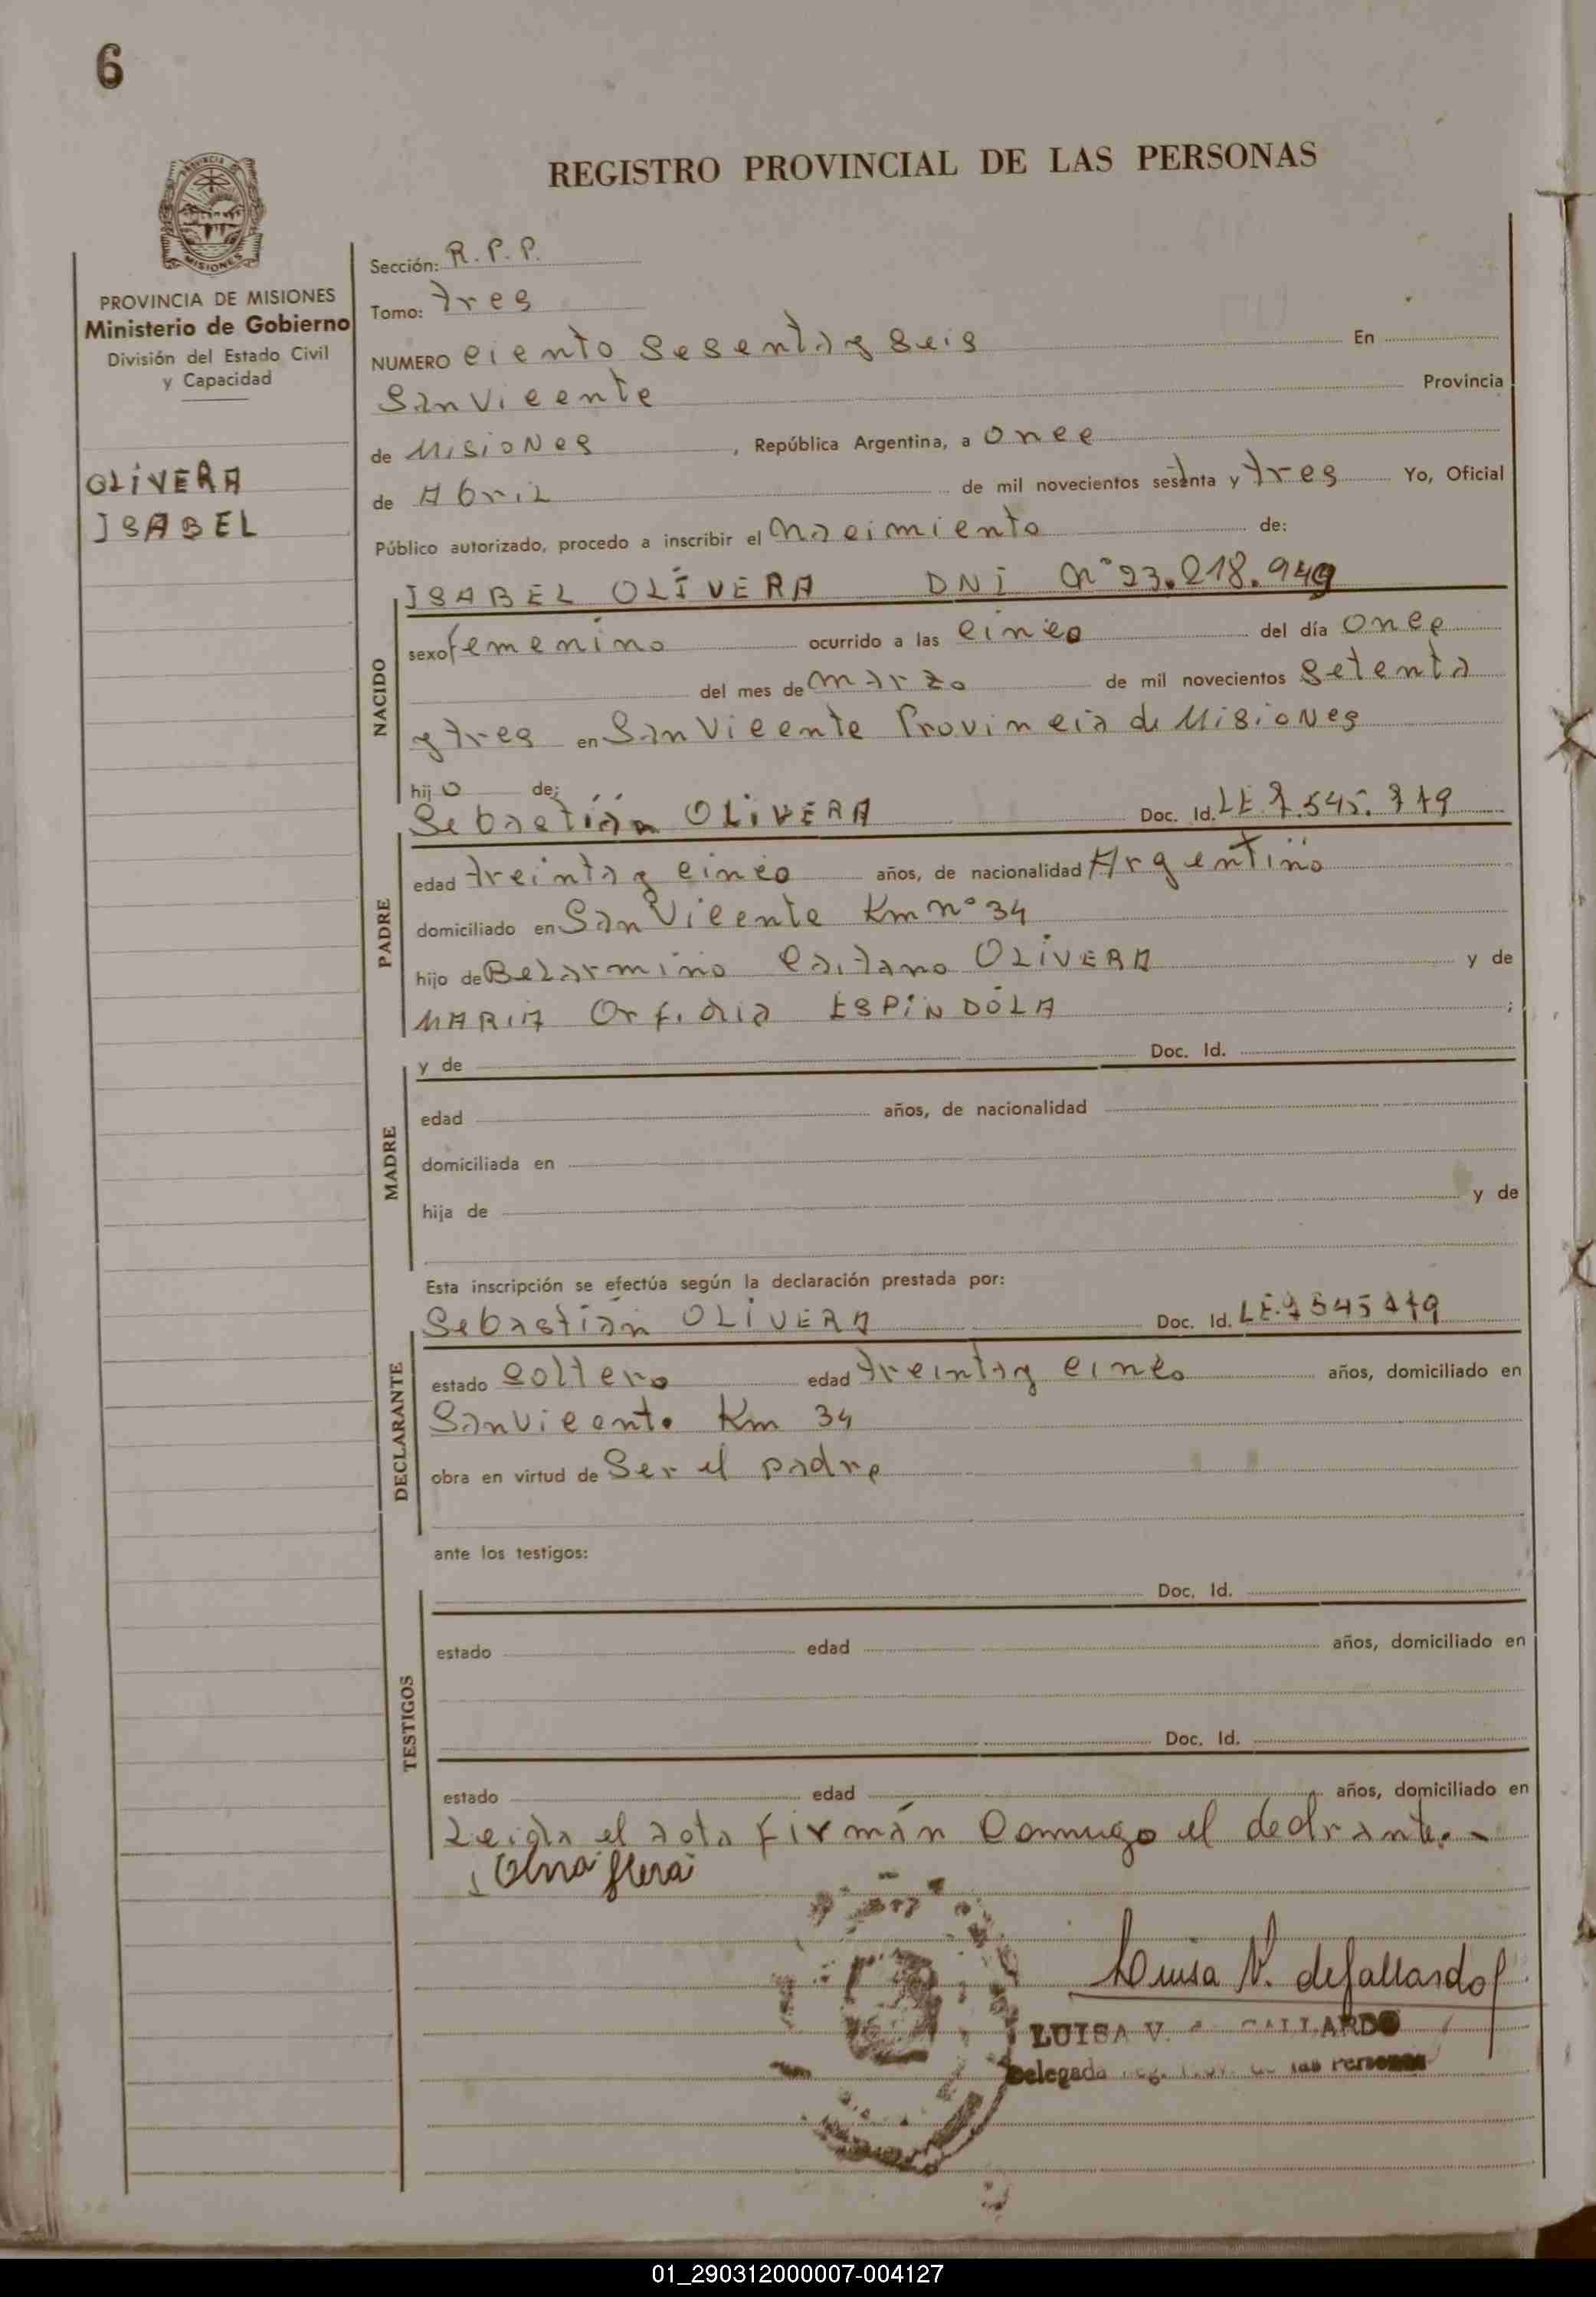 6
REGISTRO PROVINCIAL DE LAS PERSONAS
MISIONES
PROVINCIA DE MISIONES
Ministerio de Gobierno
División del Estado Civil
y Capacidad
OLIVERA
ISABEL
Sección: R.P.P.
Tomo: tres
NUMERO ciento sesenta y seis En
San Vicente Provincia
de Misiones, República Argentina, a once
de Abril de mil novecientos setenta y tres Yo, Oficial
Público autorizado, procedo a inscribir el nacimiento de:
ISABEL OLIVERA DNI Nº 23.218.949
NACIDO
sexo femenino ocurrido a las cinco del día once
del mes de marzo de mil novecientos setenta
y tres en San Vicente Provincia de Misiones
hijo de:
Sebastián OLIVERA Doc. Id. LE 7.545.
PADRE
edad treinta y cinco años, de nacionalidad Argentino
domiciliado en San Vicente Km nº 34
hijo de Belarmino OLIVERA y de
MARIA Orfidia ESPINDOLA ;
MADRE
y de Doc. Id.
edad años, de nacionalidad
domiciliada en
hija de y de
Esta inscripción se efectúa según la declaración prestada por:
Sebastián OLIVERA Doc. Id. LE.
DECLARANTE
estado soltero edad treinta y cinco años, domiciliado en
San Vicente Km 34
obra en virtud de Ser el padre
ante los testigos:
TESTIGOS
Doc. Id.
estado edad años, domiciliado en
Doc. Id.
estado edad años, domiciliado en
Leida el acta firmán Conmigo el declrante.-
Luisa V. de Gallardo
LUISA V. GALLARDO
Delegada de las Personas
01_290312000007-004127